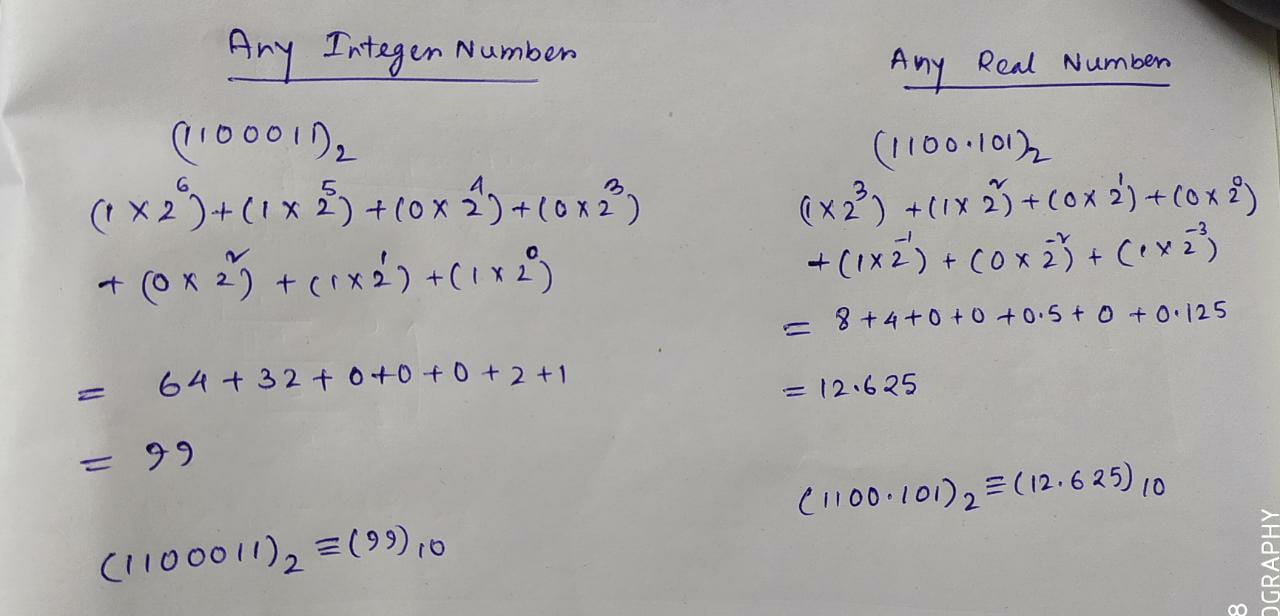 Any Integer Number
(1100011)₂
(1 × 2⁶) + (1 × 2⁵) + (0 × 2⁴) + (0 × 2³)
+ (0 × 2²) + (1 × 2¹) + (1 × 2⁰)
= 64 + 32 + 0 + 0 + 0 + 2 + 1
= 99
(1100011)₂ ≡ (99)₁₀
Any Real Number
(1100.101)₂
(1 × 2³) + (1 × 2²) + (0 × 2¹) + (0 × 2⁰)
+ (1 × 2⁻¹) + (0 × 2⁻²) + (1 × 2⁻³)
= 8 + 4 + 0 + 0 + 0.5 + 0 + 0.125
= 12.625
(1100.101)₂ ≡ (12.625)₁₀
8